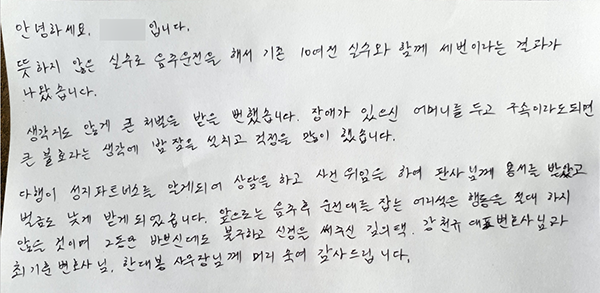 안녕하세요. 입니다.
뜻하지 않은 실수로 음주운전을 해서 기존 10여년 실수와 함께 세번이라는 결과가
나왔습니다.
생각지도 않게 큰 처벌을 받을 뻔했습니다. 장애가 있으신 어머니를 두고 구속이라도되면
큰 불효라는 생각에 밤잠을 설치고 걱정을 많이 했습니다.
다행이 성지파트너스를 알게되어 상담을 하고 사건 위임을 하여 판사님께 용서를 받았고
벌금도 낮게 받게 되었습니다. 앞으로는 음주후 운전대를 잡는 어리석은 행동은 절대 하지
않을 것이며 그동안 바쁘신데도 불구하고 신경을 써주신 김의택. 강천규 대표변호사님과
최기훈변호사님. 한대봉 사무장님께 머리 숙여 감사드립니다.